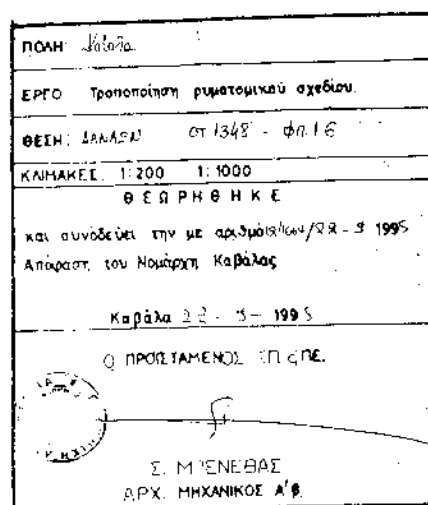 ΠΟΛΗ: Καβάλα
ΕΡΓΟ Τροποποίηση ρυμοτομικού σχεδίου.
ΘΕΣΗ: ΔΑΝΑΩΝ ΟΤ 1348 - ΦΠ.16
ΚΛΙΜΑΚΕΣ: 1:200 1:1000
ΘΕΩΡΗΘΗΚΕ
και συνοδεύει την με αριθμό /22 - 9 1995
Απόφαση του Νομάρχη Καβάλας
Καβάλα 22 - 9 - 1995
Ο ΠΡΟΙΣΤΑΜΕΝΟΣ ΠΕ.
Σ. ΜΠΕΝΕΘΑΣ
ΑΡΧ. ΜΗΧΑΝΙΚΟΣ Α'β.